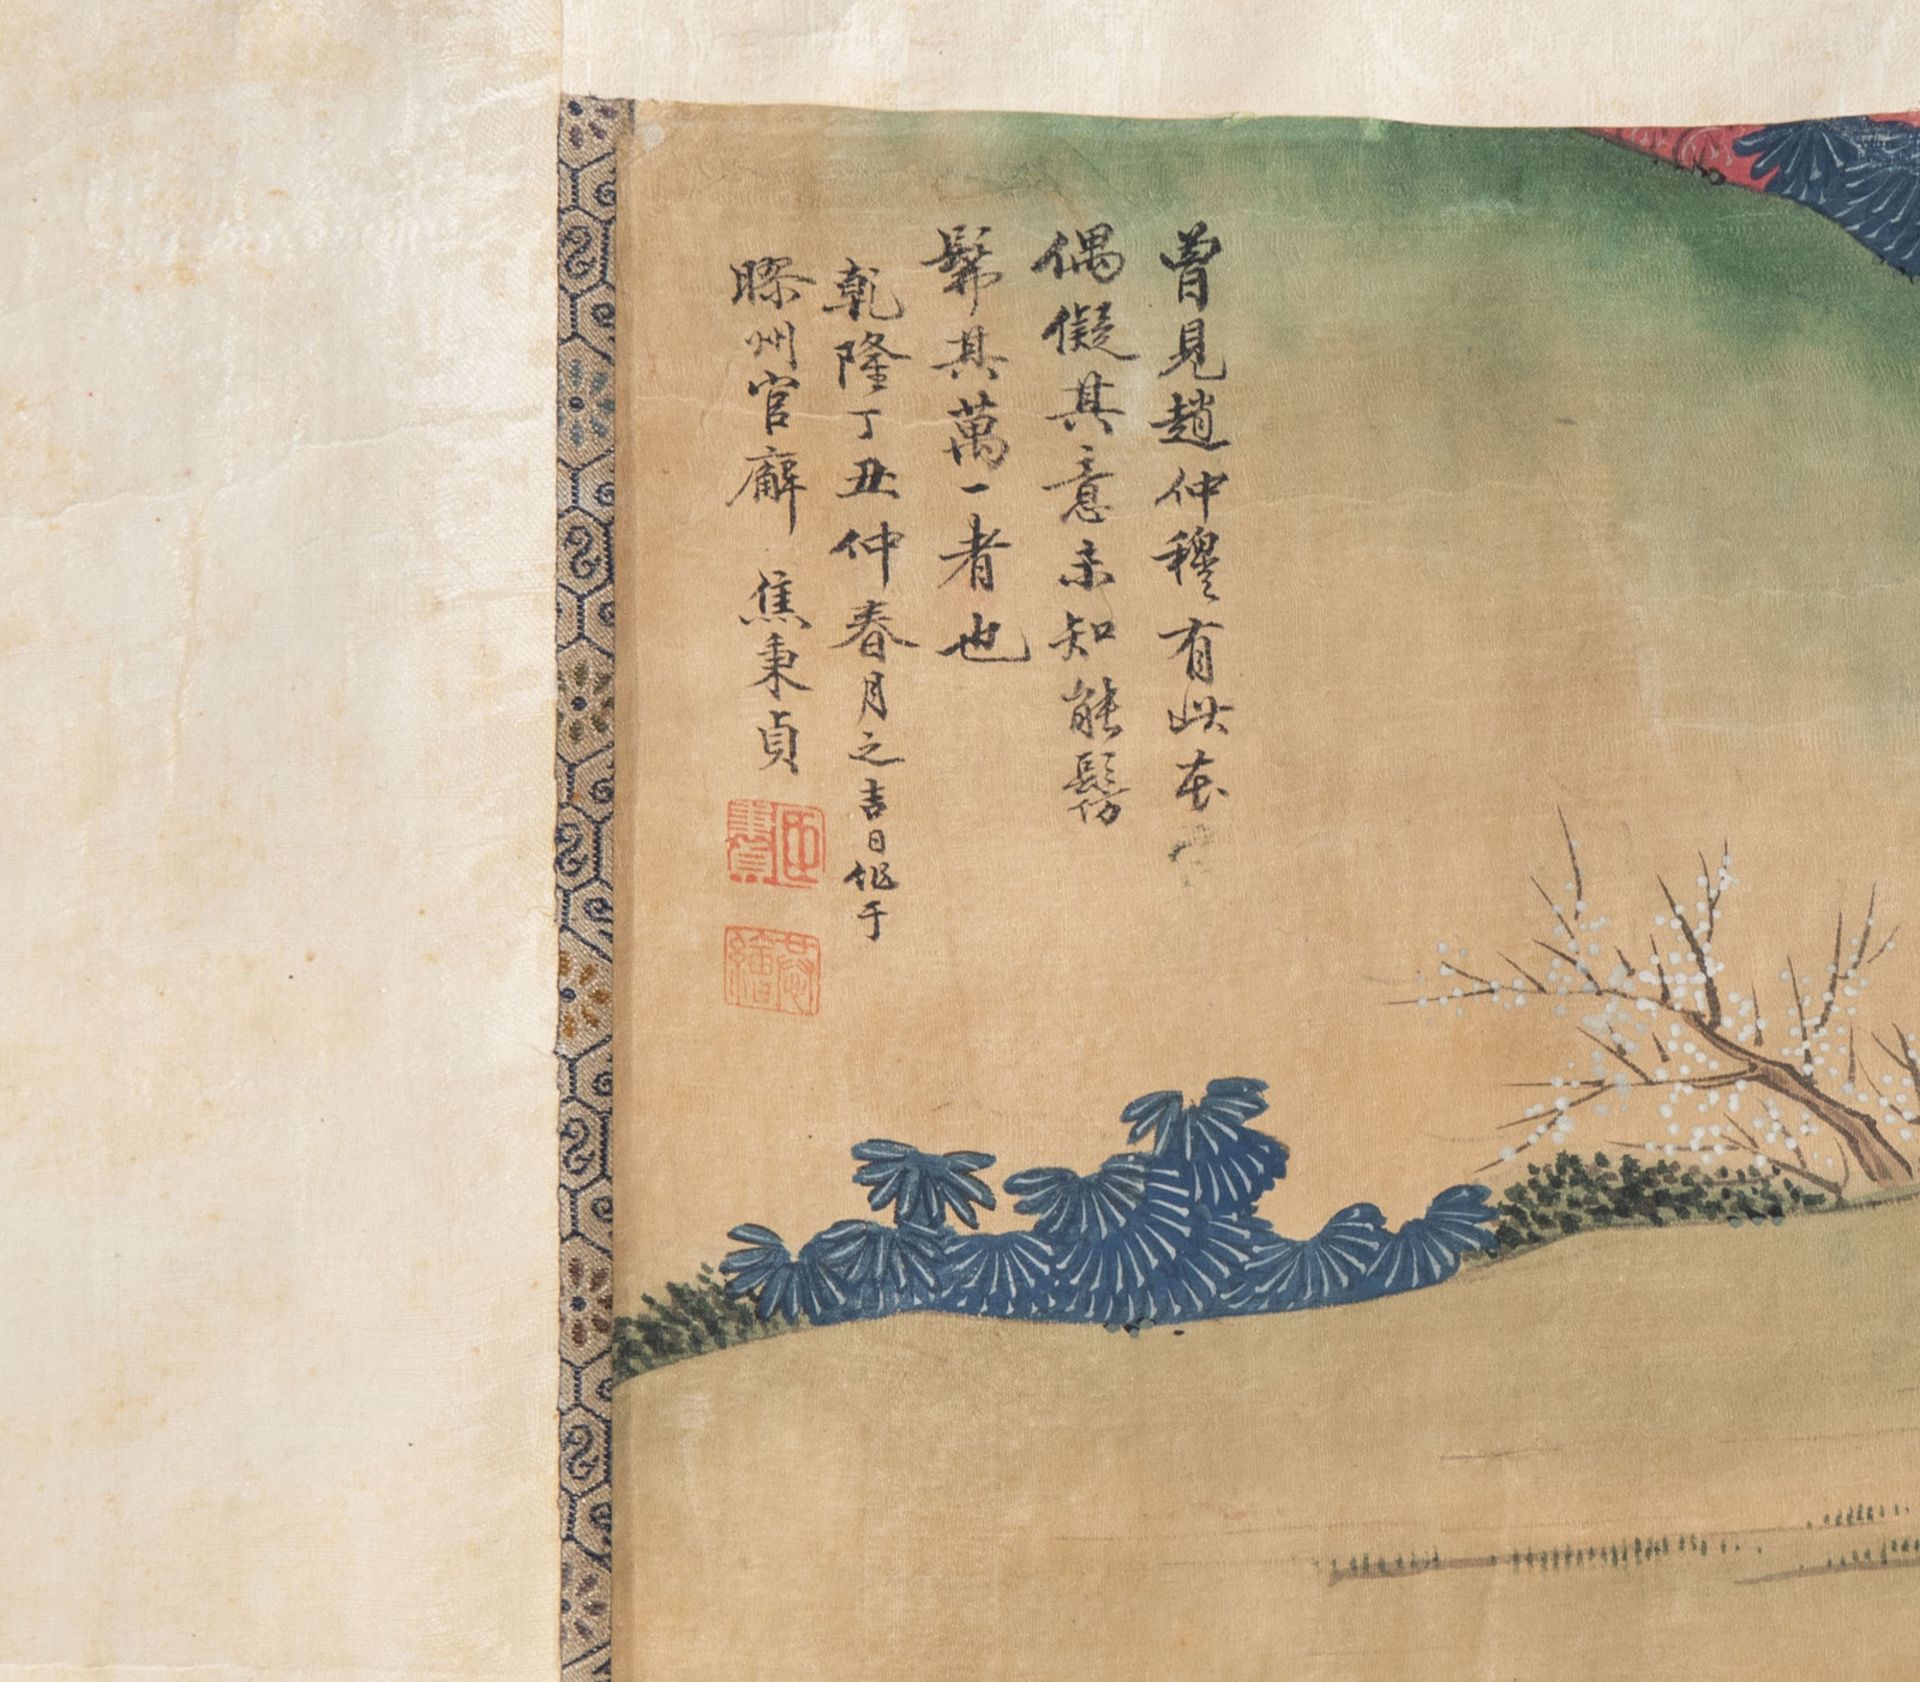 曾見趙仲穆有此本
偶儗其意未知能髣
髴其萬一者也
乾隆丁丑仲春月之吉日作于
滁州官廨 焦秉貞